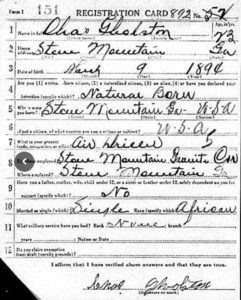 Form 1 151 REGISTRATION CARD 892 No. 52
1 Name in full Chas Gholston Age, in yrs. 23
2 Home address Stone Mountain Ga
3 Date of birth March 9 1894
4 Natural Born
5 Where were you born? Stone Mountain Ga U-S-A
6 If not a citizen, of what country are you a citizen or subject? U-S-A
7 What is your present trade, occupation, or office? Air Driller
8 By whom employed? Stone Mountain Granite Cor
Where employed? Stone Mountain Ga
9 Have you a father, mother, wife, child under 12, or a sister or brother under 12, solely dependent on you for support (specify which)? No
10 Married or single (which)? Single Race (specify which)? African
11 What military service have you had? Rank None branch
years Nation or State
12 Do you claim exemption from draft (specify grounds)?
I affirm that I have verified above answers and that they are true.
Chas Gholston